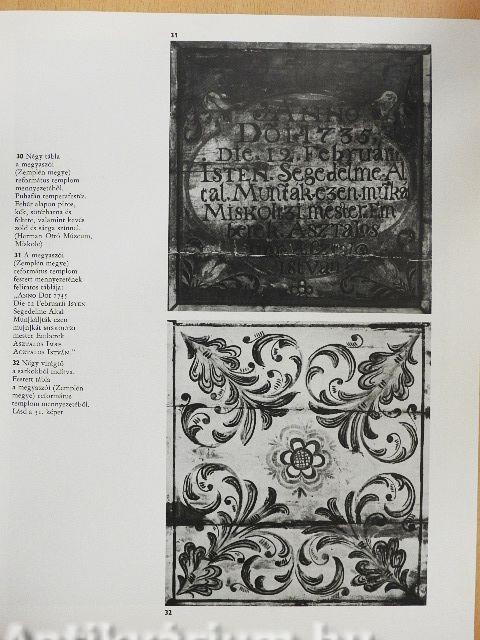 31
30 Négy tábla
a megyaszói
(Zemplén megye)
református templom
mennyezetéből.
Puhafán temperafestés.
Fehér alapon piros,
kék, sötétbarna és
fekete, valamint kevés
zöld és sárga színnel.
(Herman Ottó Múzeum,
Miskolc)
31 A megyaszói
(Zemplén megye)
református templom
festett mennyezetének
feliratos táblája:
„ANNO DOI 1735
Die 12 Februarii ISTEN
Segedelme Által
Mun[kál]ták ezen
mu[n]kát MISKOLTZI
mester Emberek
ASZTALOS IMRE
ASZTALOS ISTVÁN."
32 Négy virágtő
a sarkokból indítva.
Festett tábla
a megyaszói (Zemplén
megye) református
templom mennyezetéből.
Lásd a 31. képet
ANNO
DOI 1735
Die 12 Februari
ISTEN Segedelme Al
tal Munták ezen munka
MISKOLTZI mester Em
berek ASZTALOS
32
Antikvárium.hu